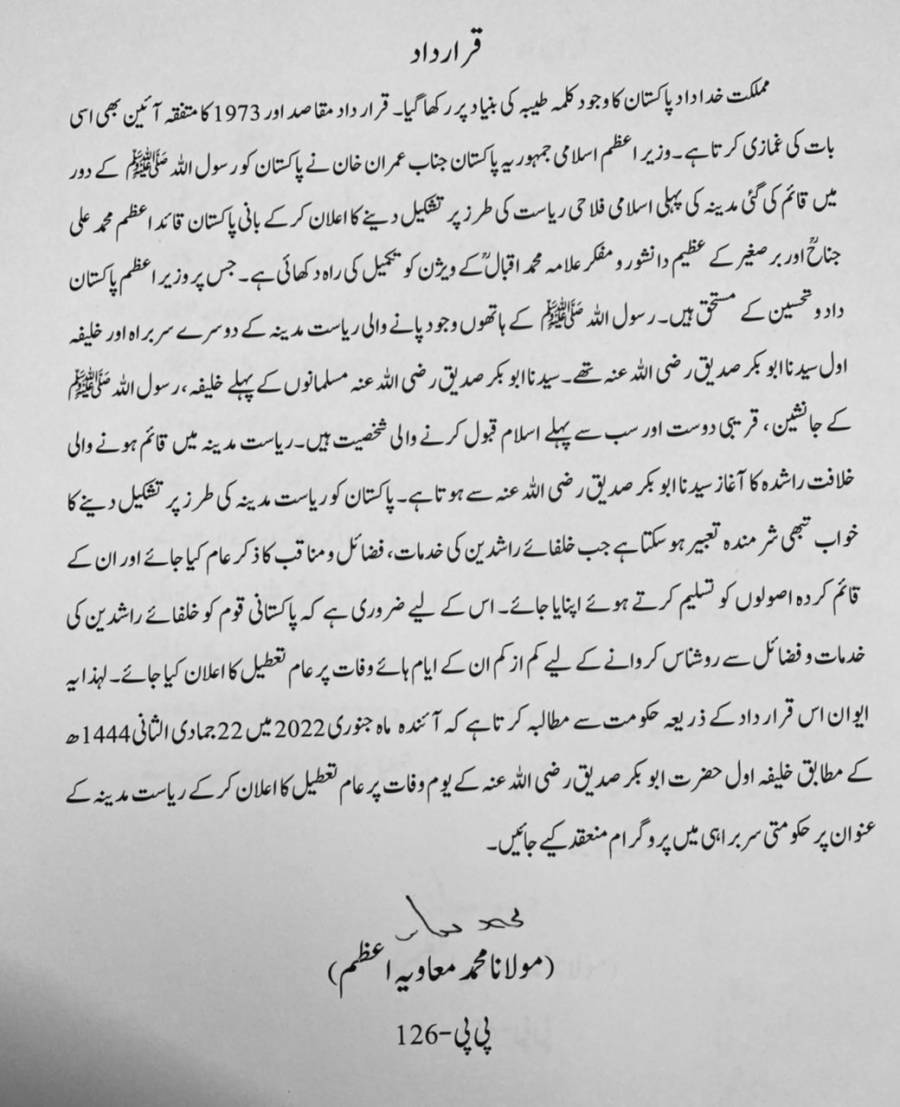 قرارداد
مملکت خداداد پاکستان کا وجود کلمہ طیبہ کی بنیاد پر رکھا گیا۔ قرار داد مقاصد اور 1973 کا متفقہ آئین بھی اسی
بات کی غمازی کرتا ہے۔ وزیر اعظم اسلامی جمہوریہ پاکستان جناب عمران خان نے پاکستان کو رسول اللہ ﷺ کے دور
میں قائم کی گئی مدینہ کی پہلی اسلامی فلاحی ریاست کی طرز پر تشکیل دینے کا اعلان کر کے بانی پاکستان قائد اعظم محمد علی
جناحؒ اور برصغیر کے عظیم دانشور و مفکر علامہ محمد اقبالؒ کے ویژن کو تکمیل کی راہ دکھائی ہے۔ جس پر وزیر اعظم پاکستان
داد و تحسین کے مستحق ہیں۔ رسول اللہ ﷺ کے ہاتھوں وجود پانے والی ریاست مدینہ کے دوسرے سربراہ اور خلیفہ
اول سیدنا ابو بکر صدیق رضی اللہ عنہ تھے۔ سیدنا ابو بکر صدیق رضی اللہ عنہ مسلمانوں کے پہلے خلیفہ، رسول اللہ ﷺ
کے جانشین، قریبی دوست اور سب سے پہلے اسلام قبول کرنے والی شخصیت ہیں۔ ریاست مدینہ میں قائم ہونے والی
خلافت راشدہ کا آغاز سیدنا ابو بکر صدیق رضی اللہ عنہ سے ہوتا ہے۔ پاکستان کو ریاست مدینہ کی طرز پر تشکیل دینے کا
خواب تبھی شرمندہ تعبیر ہو سکتا ہے جب خلفائے راشدین کی خدمات، فضائل و مناقب کا ذکر عام کیا جائے اور ان کے
قائم کردہ اصولوں کو تسلیم کرتے ہوئے اپنایا جائے۔ اس کے لیے ضروری ہے کہ پاکستانی قوم کو خلفائے راشدین کی
خدمات و فضائل سے روشناس کروانے کے لیے کم از کم ان کے ایام ہائے وفات پر عام تعطیل کا اعلان کیا جائے۔ لہذا یہ
ایوان اس قرار داد کے ذریعہ حکومت سے مطالبہ کرتا ہے کہ آئندہ ماہ جنوری 2022 میں 22 جمادی الثانی 1444ھ
کے مطابق خلیفہ اول حضرت ابو بکر صدیق رضی اللہ عنہ کے یوم وفات پر عام تعطیل کا اعلان کر کے ریاست مدینہ کے
عنوان پر حکومتی سربراہی میں پروگرام منعقد کیے جائیں۔
محمد معاویہ
(مولانا محمد معاویہ اعظم)
پی پی-126